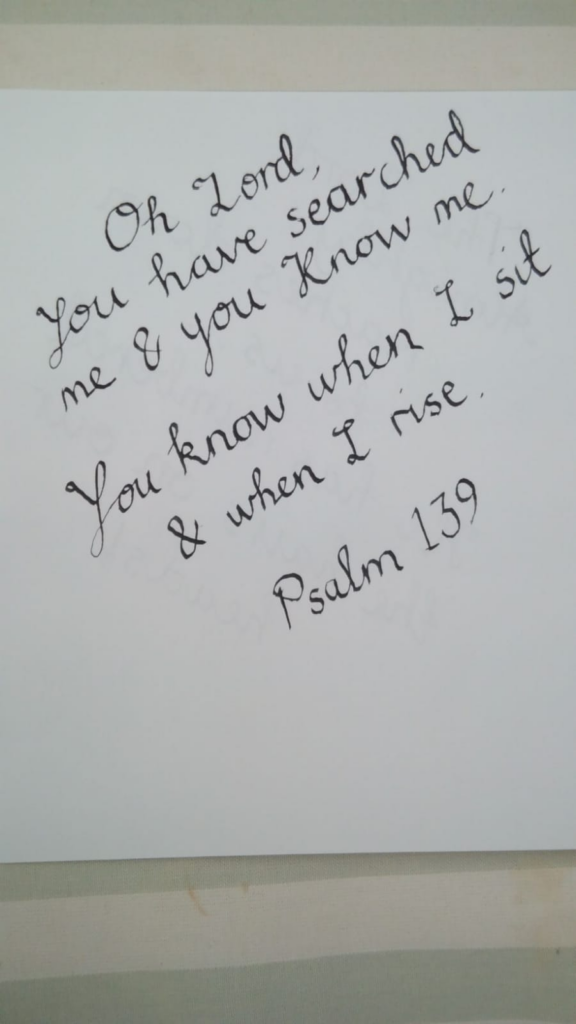 Oh Lord,
You have searched
me & you Know me.
You know when I sit
& when I rise.
Psalm 139